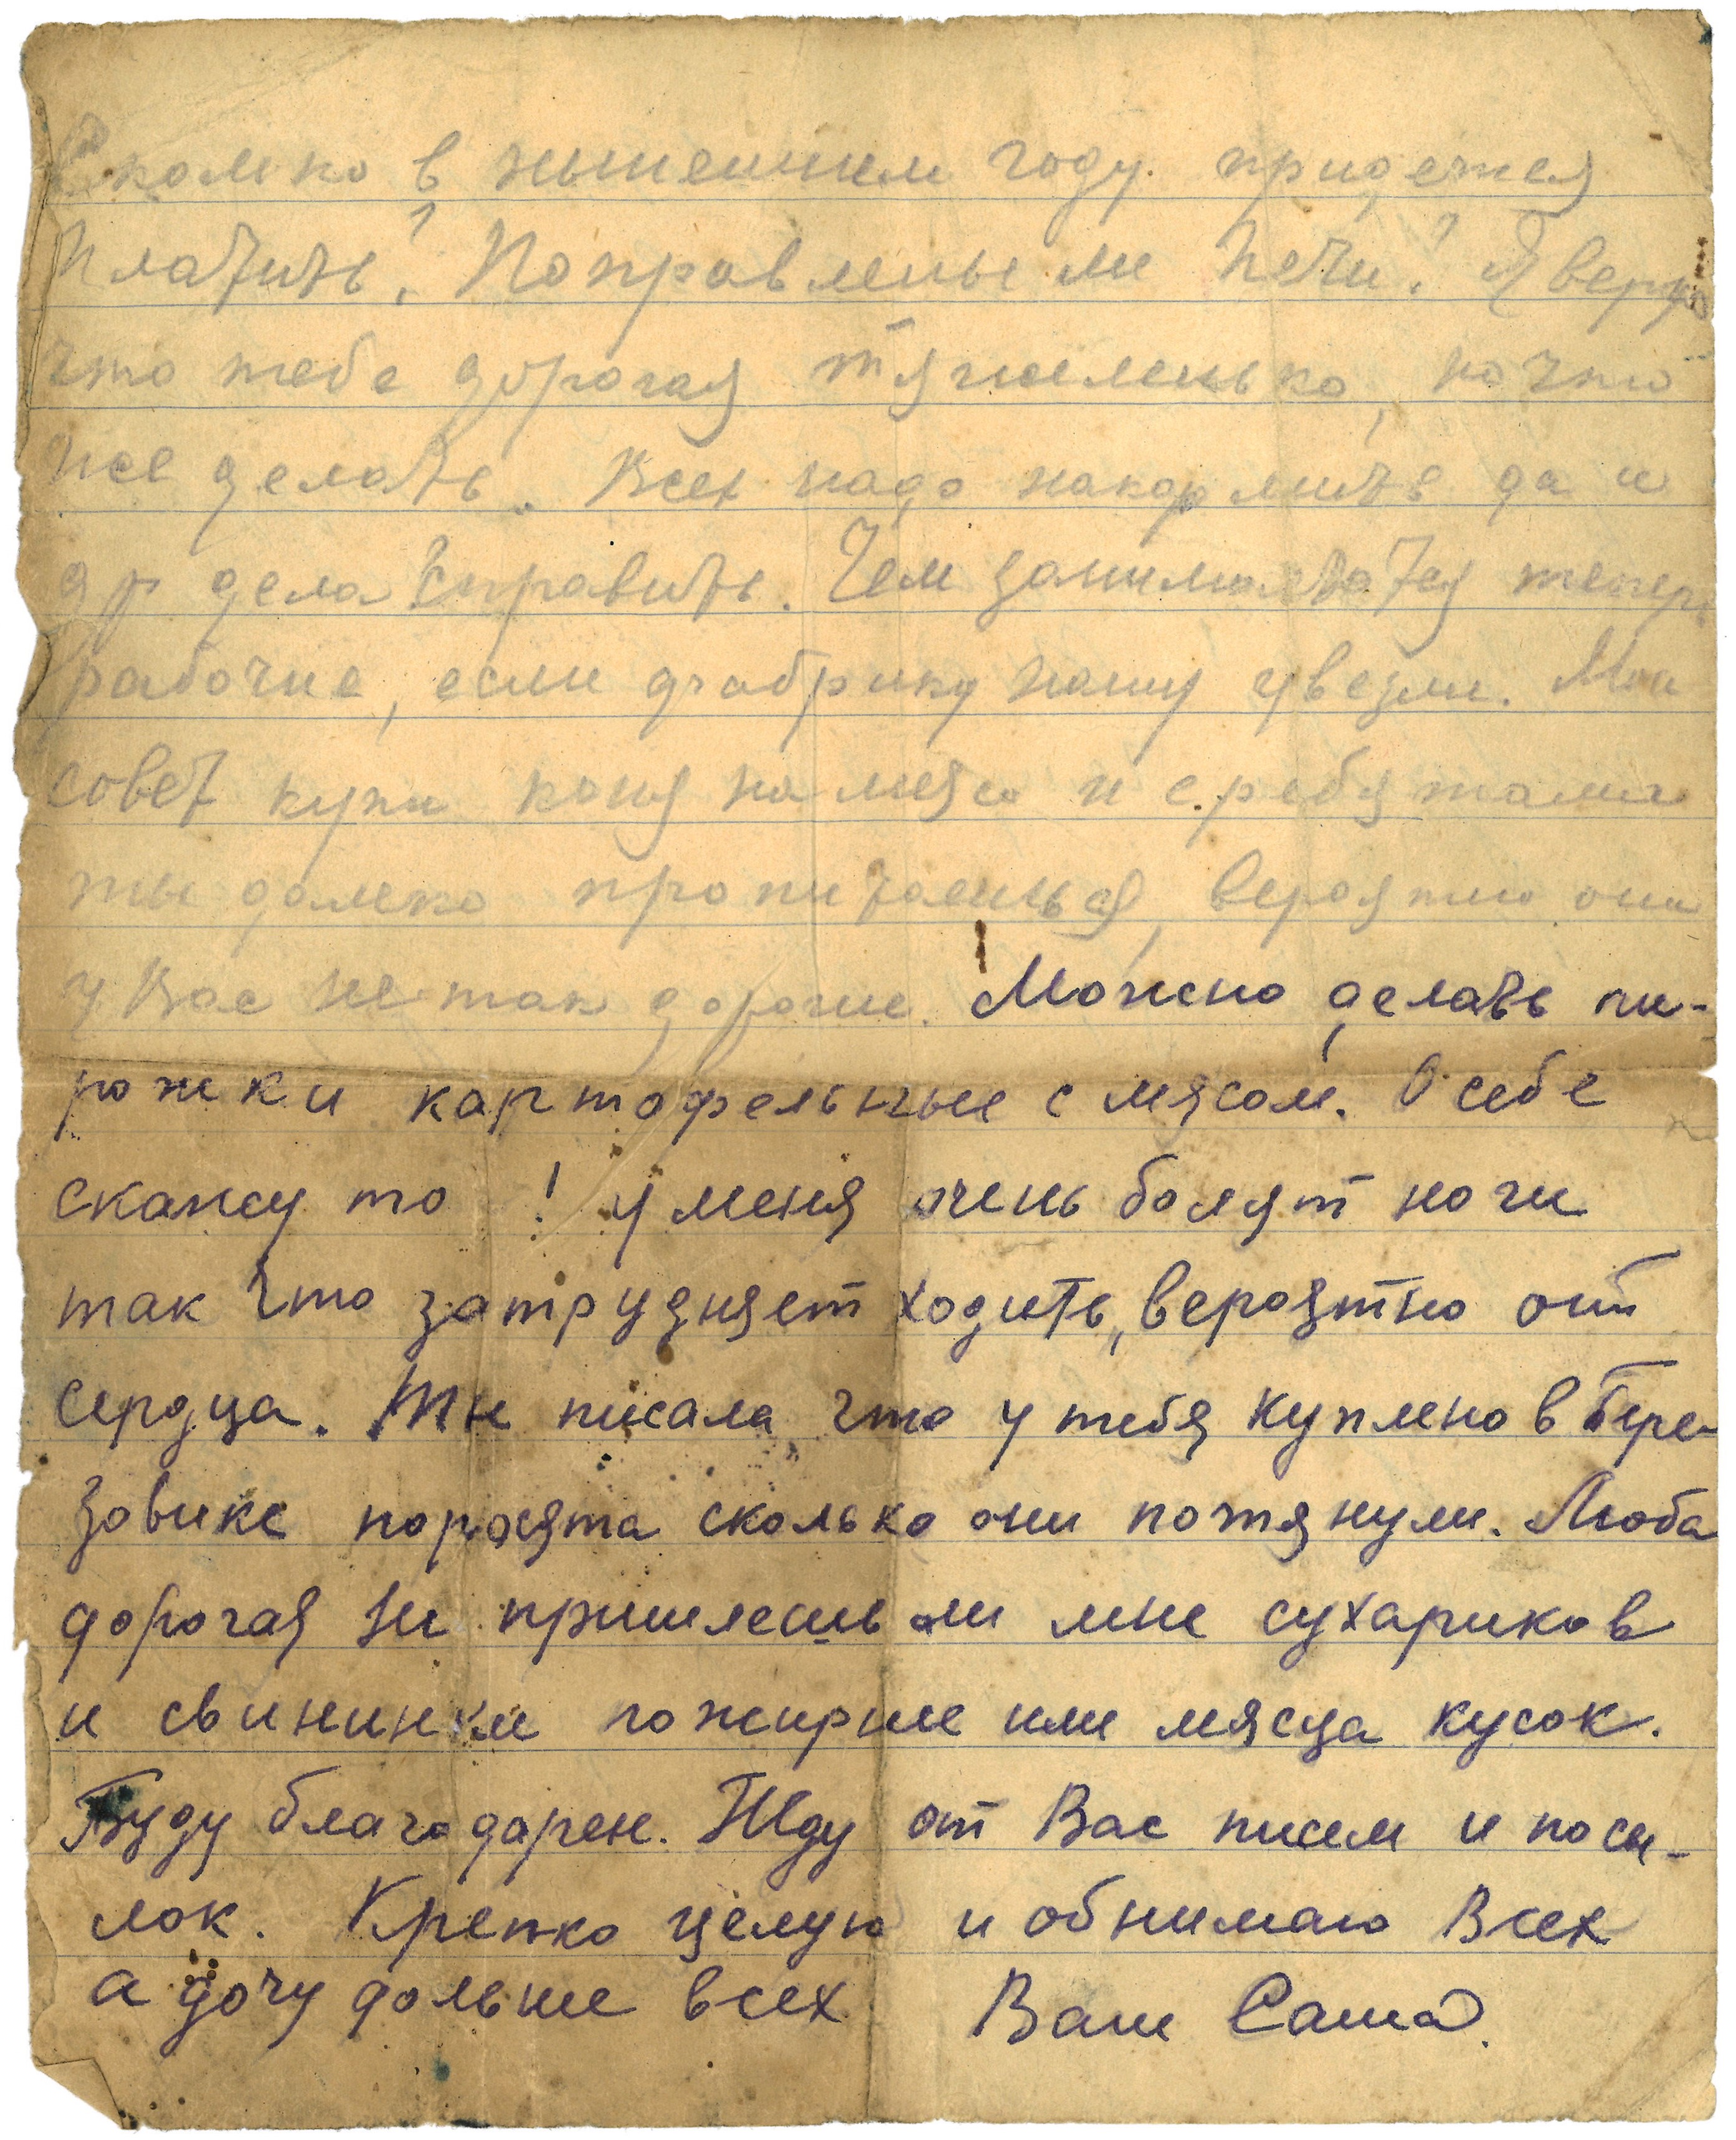 Сколько в нынешнем году придется
платить? Поправлены ли печи? Я верю
что тебе дорогая тяжеленько, но что
же делать. Всех надо накормить да и
др дела справить. Чем занимаются теперь
рабочие, если фабрику нашу увезли. Мой
совет купи коня на мясо и с ребятами
ты далеко пропитаешься, вероятно они
у Вас не так дорогие. Можно делать пи-
рожки картофельные с мясом. О себе
скажу то ! у меня очень болят ноги
так что затрудняет ходить, вероятно от
сердца. Ты писала что у тебя куплено в Бере-
зовике поросята сколько они потянули. Люба
дорогая не пришлешь ли мне сухариков
и свининки пожирние или мясца кусок.
Буду благодарен. Жду от Вас писем и посы-
лок. Крепко целую и обнимаю Всех
а дочу дольше всех Ваш Саша.